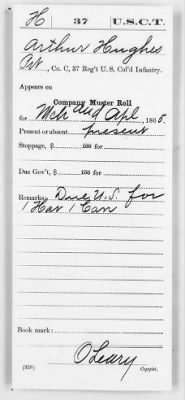 H | 37 | U.S.C.T.
Arthur Hughes
Pvt., Co. C, 37 Reg't U. S. Col'd Infantry.
Appears on
Company Muster Roll
for Mch and Apl, 1865.
Present or absent present
Stoppage, $ 100 for
Due Gov't, $ 100 for
Remarks: Due U.S. for
1 Hav 1 Can
Book mark:
O'Leary
(358) Copyist.